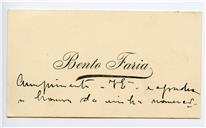 Bento Faria
Cumprimenta a V. E. e agradece
a honra da minha nomeação